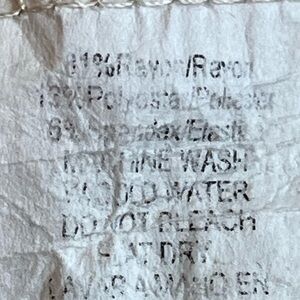 81%Rayon/Rayon
13%Polyester/Poliester
6%Spandex/Elastic
MACHINE WASH
COLD WATER
DO NOT BLEACH
FLAT DRY
LAVAR A MANO EN